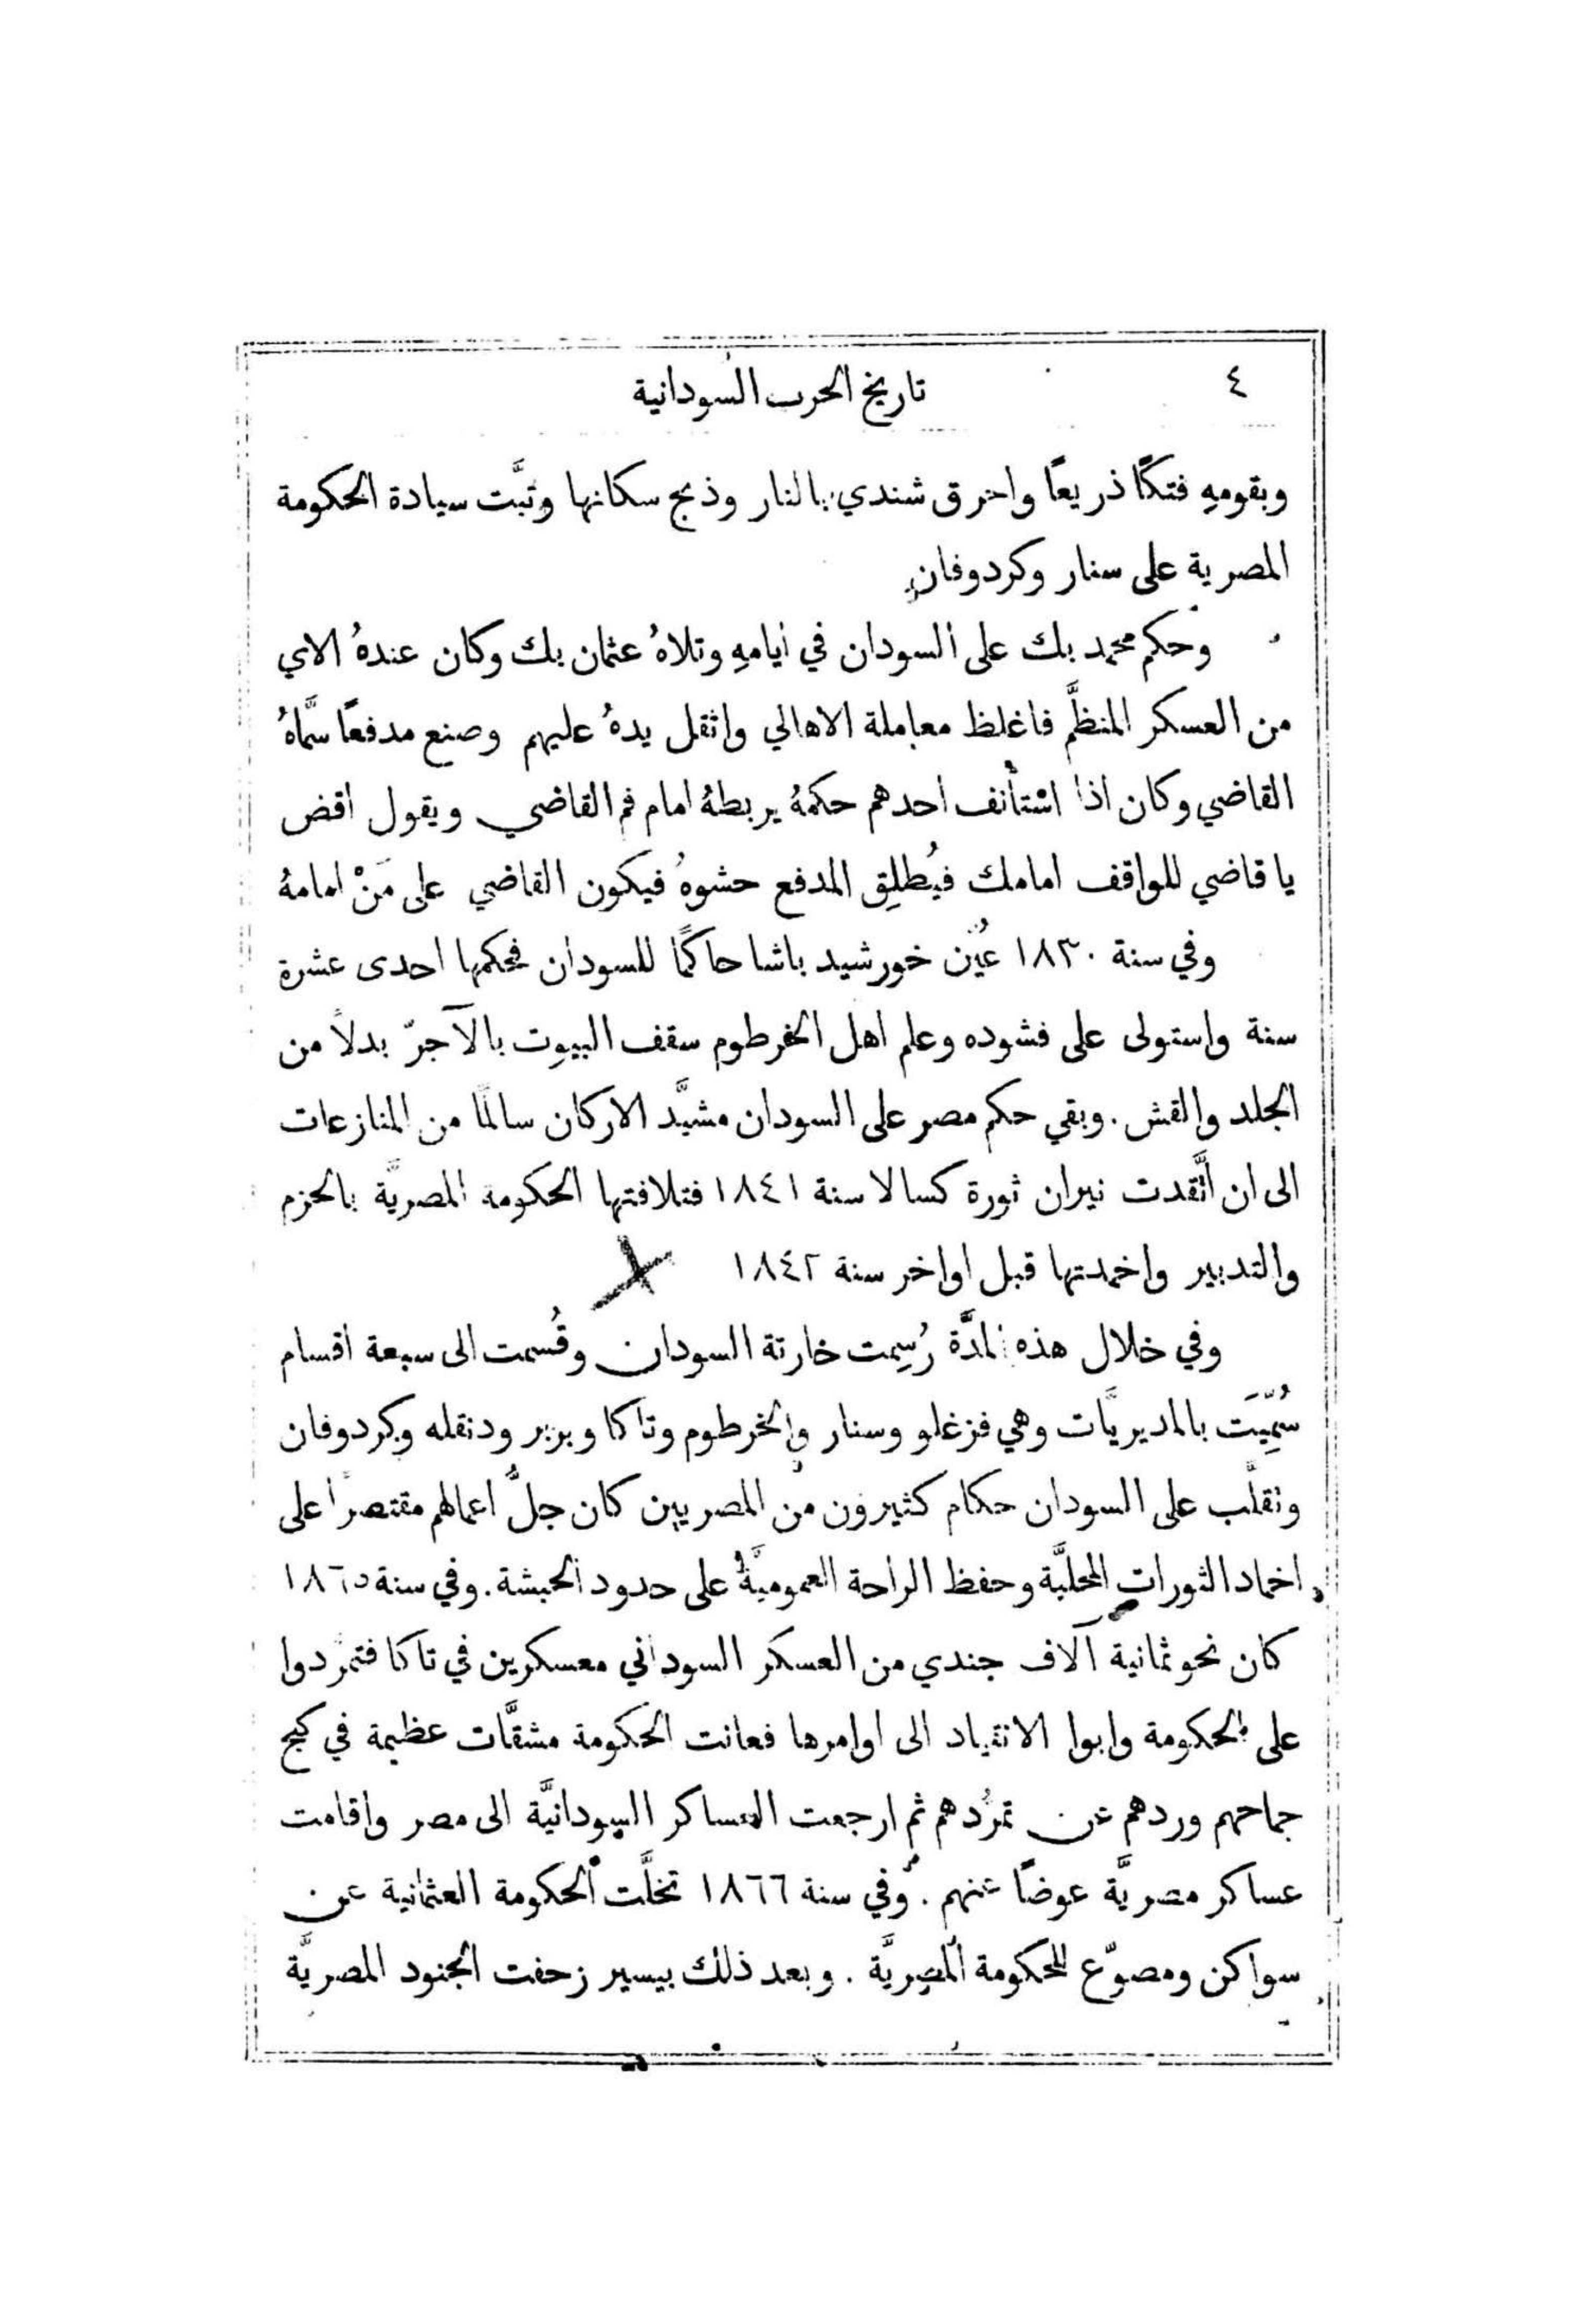 ٤
تاريخ الحرب السودانية
وبقومهِ فتكًا ذريعًا واحرق شندي بالنار وذبح سكانها وثبَّت سيادة الحكومة
المصرية على سنار وكردوفان
وحكم محمد بك على السودان في ايامهِ وتلاهُ عثمان بك وكان عندهُ الاي
من العسكر المنظَّم فاغلظ معاملة الاهالي واثقل يدهُ عليهم وصنع مدفعًا سمَّاهُ
القاضي وكان اذا استأنف احدهم حكمهُ يربطهُ امام فم القاضي ويقول اقض
يا قاضي للواقف امامك فيُطلِق المدفع حشوهُ فيكون القاضي على مَنْ امامهُ
وفي سنة ١٨٣٠ عُيّن خورشيد باشا حاكمًا للسودان فحكمها احدى عشرة
سنة واستولى على فشوده وعلم اهل الخرطوم سقف البيوت بالآجرّ بدلاً من
الجلد والقش. وبقي حكم مصر على السودان مشيَّد الاركان سالمًا من المنازعات
الى ان اتَّقدت نيران ثورة كسالا سنة ١٨٤١ فتلافتها الحكومة المصريَّة بالحزم
والتدبير واخمدتها قبل اواخر سنة ١٨٤٢
وفي خلال هذه المدَّة رُسِمت خارتة السودان وقُسمت الى سبعة اقسام
سُمِّيَت بالمديريَّات وهي فزغلو وسنار والخرطوم وتاكا وبربر ودنقله وكردوفان
وتقلَّب على السودان حكام كثيرون من المصريين كان جلُّ اعمالهم مقتصرًا على
اخماد الثورات المحليَّة وحفظ الراحة العموميَّة على حدود الحبشة. وفي سنة ١٨٦٥
كان نحو ثمانية آلاف جندي من العسكر السوداني معسكرين في تاكا فتمرَّدوا
على الحكومة وابوا الانقياد الى اوامرها فعانت الحكومة مشقَّات عظيمة في كبح
جماحهم وردهم عن تمرُّدهم ثم ارجعت العساكر السودانيَّة الى مصر واقامت
عساكر مصريَّة عوضًا عنهم. وفي سنة ١٨٦٦ تخلَّت الحكومة العثمانية عن
سواكن ومصوّع للحكومة المصريَّة. وبعد ذلك بيسير زحفت الجنود المصريَّة